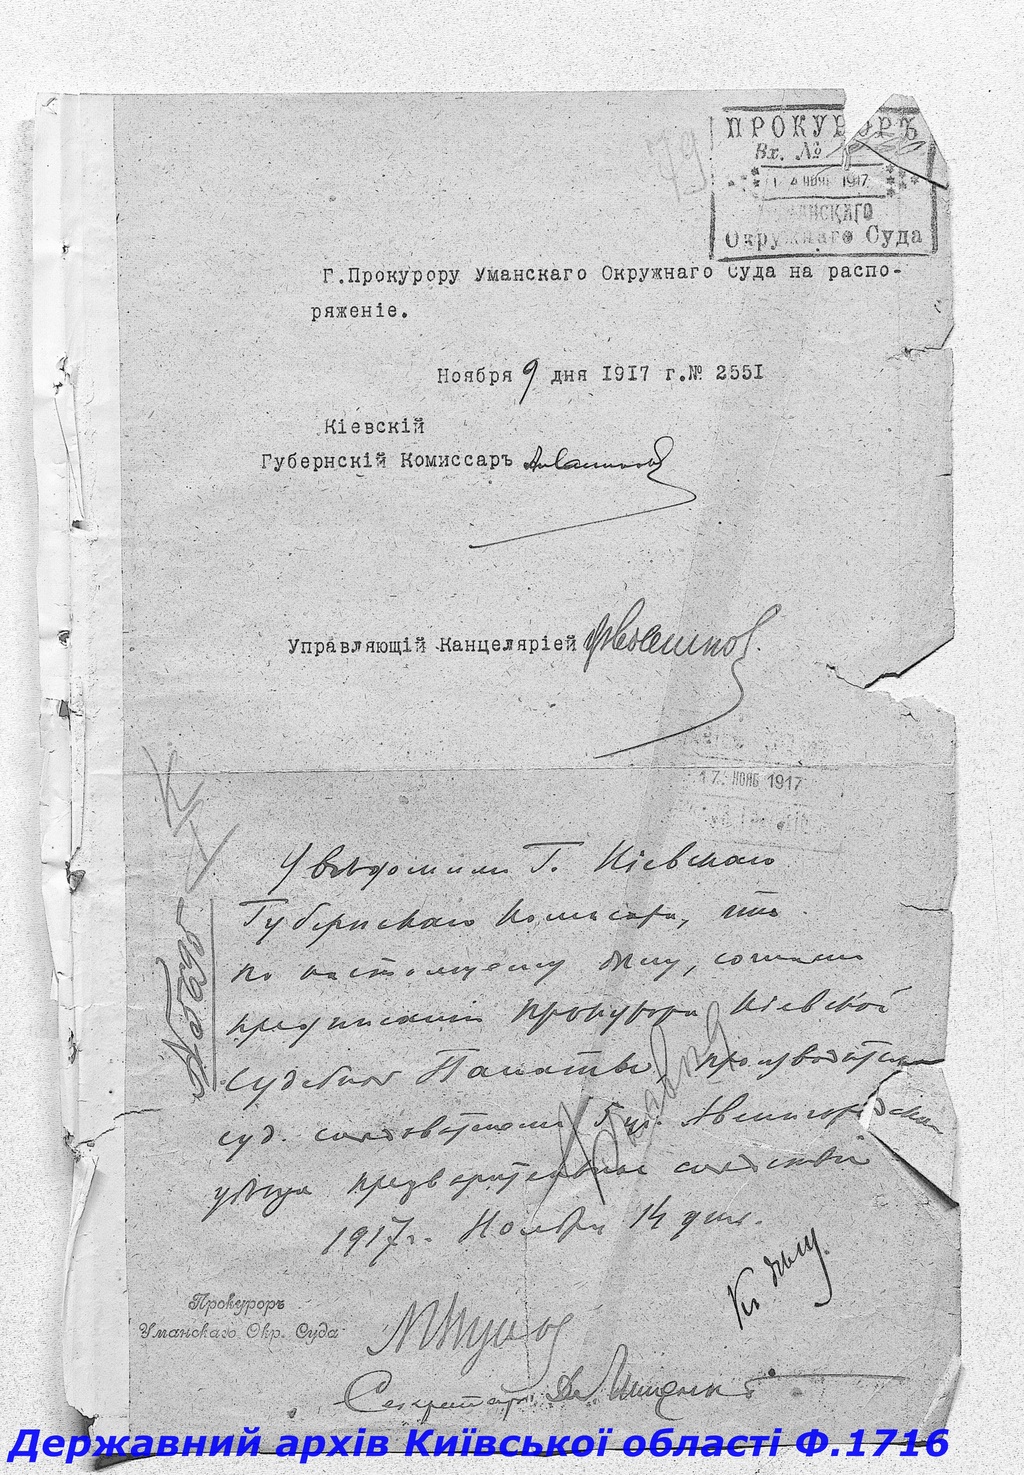 79
ПРОКУРОРЪ
Вх. №
1 4 НОЯБ 1917
УМАНСКАГО
Окружнаго Суда
Г.Прокурору Уманскаго Окружнаго Суда на распо-
ряженіе.
Ноября 9 дня 1917 г.№ 2551
Кіевскій
Губернскій Комиссаръ
Управляющій Канцеляріей
17. НОЯБ 1917
Увѣдомить Г. Кіевскаго
Губернскаго Комисара, что
по настоящему дѣлу, согласно
предписанія Прокурора Кіевской
Судебной Палаты, производится
суд. слѣдователемъ 5 уч. Звенигородскаго
уѣзда предварительное слѣдствіе
1917 г. Ноября 14 дня.
Къ дѣлу.
Прокуроръ
Уманскаго Окр. Суда
Секретарь
Державний архів Київської області Ф.1716